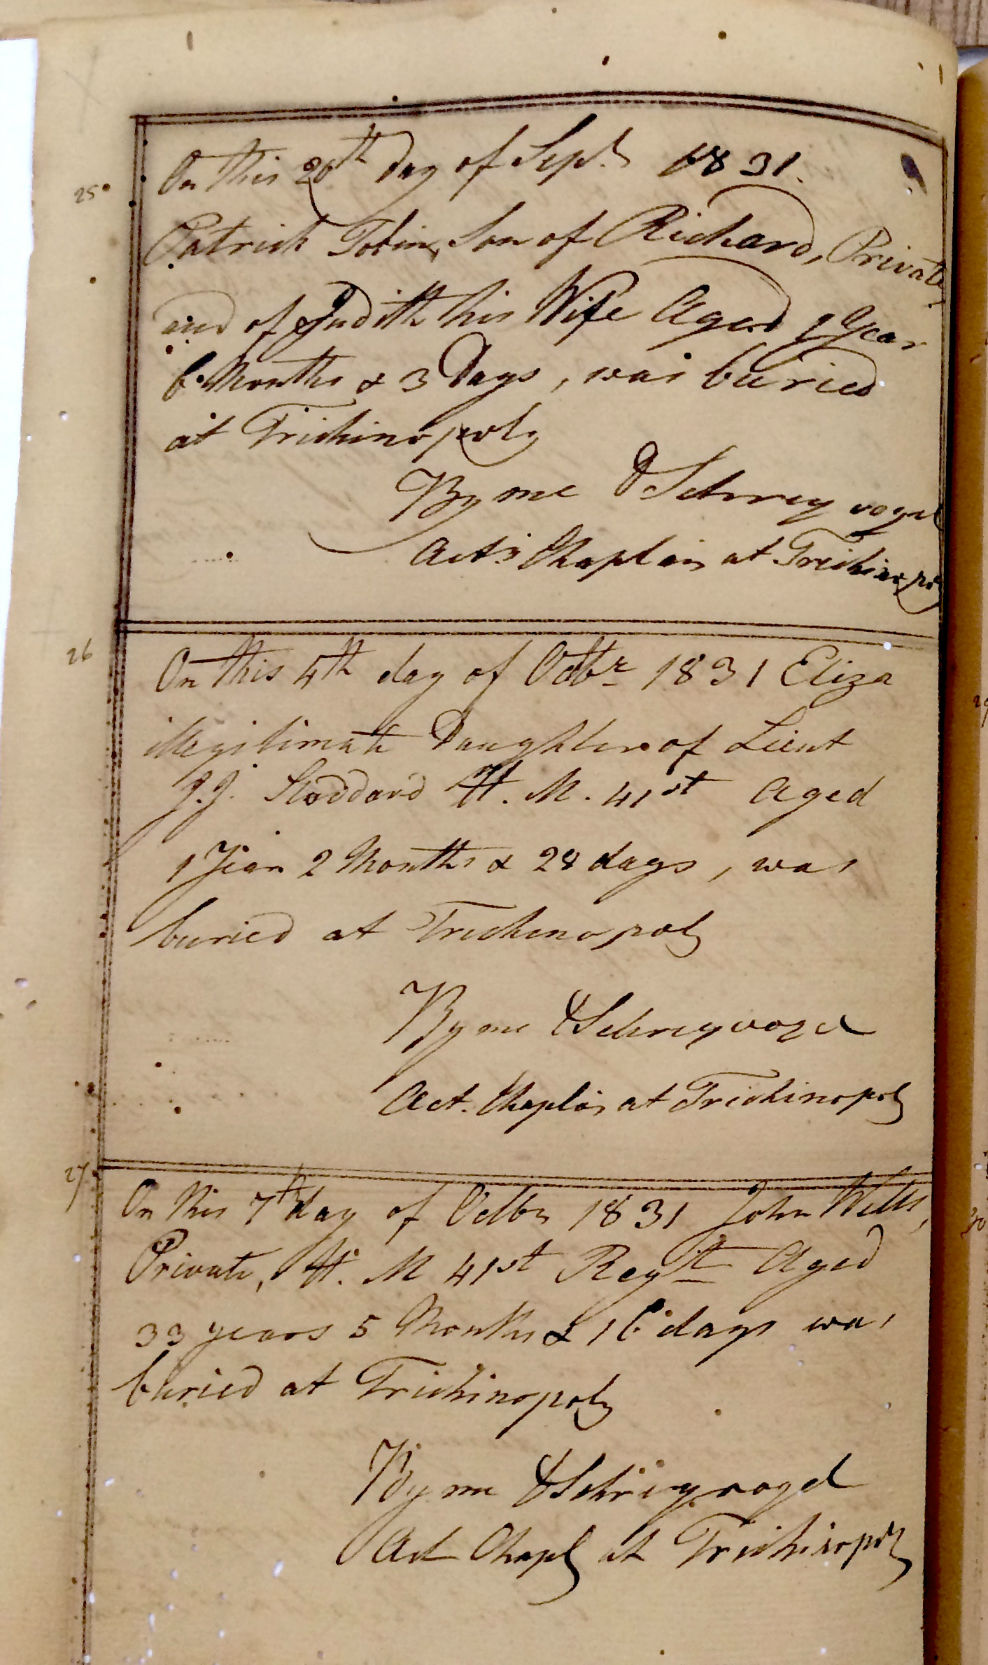 25
On this 20th day of Sept. 1831.
Patrick Tobin, Son of Richard, Private,
and of Judith his Wife Aged 1 Year
6 Months & 3 Days, was buried
at Trichinopoly
By me D Schreyvogel
Actg Chaplain at Trichinopoly
26
On this 4th day of Octbr 1831 Eliza
illegitimate Daughter of Lieut
J.J. Stoddard H. M. 41st Aged
1 Year 2 Months & 28 days, was
buried at Trichinopoly
By me D Schreyvogel
Act. Chaplain at Trichinopoly
27
On this 7th day of Octbr 1831 John Wells,
Private, H. M 41st Regt Aged
33 years 5 Months & 16 days was
buried at Trichinopoly
By me D Schreyvogel
Act Chapl at Trichinopoly